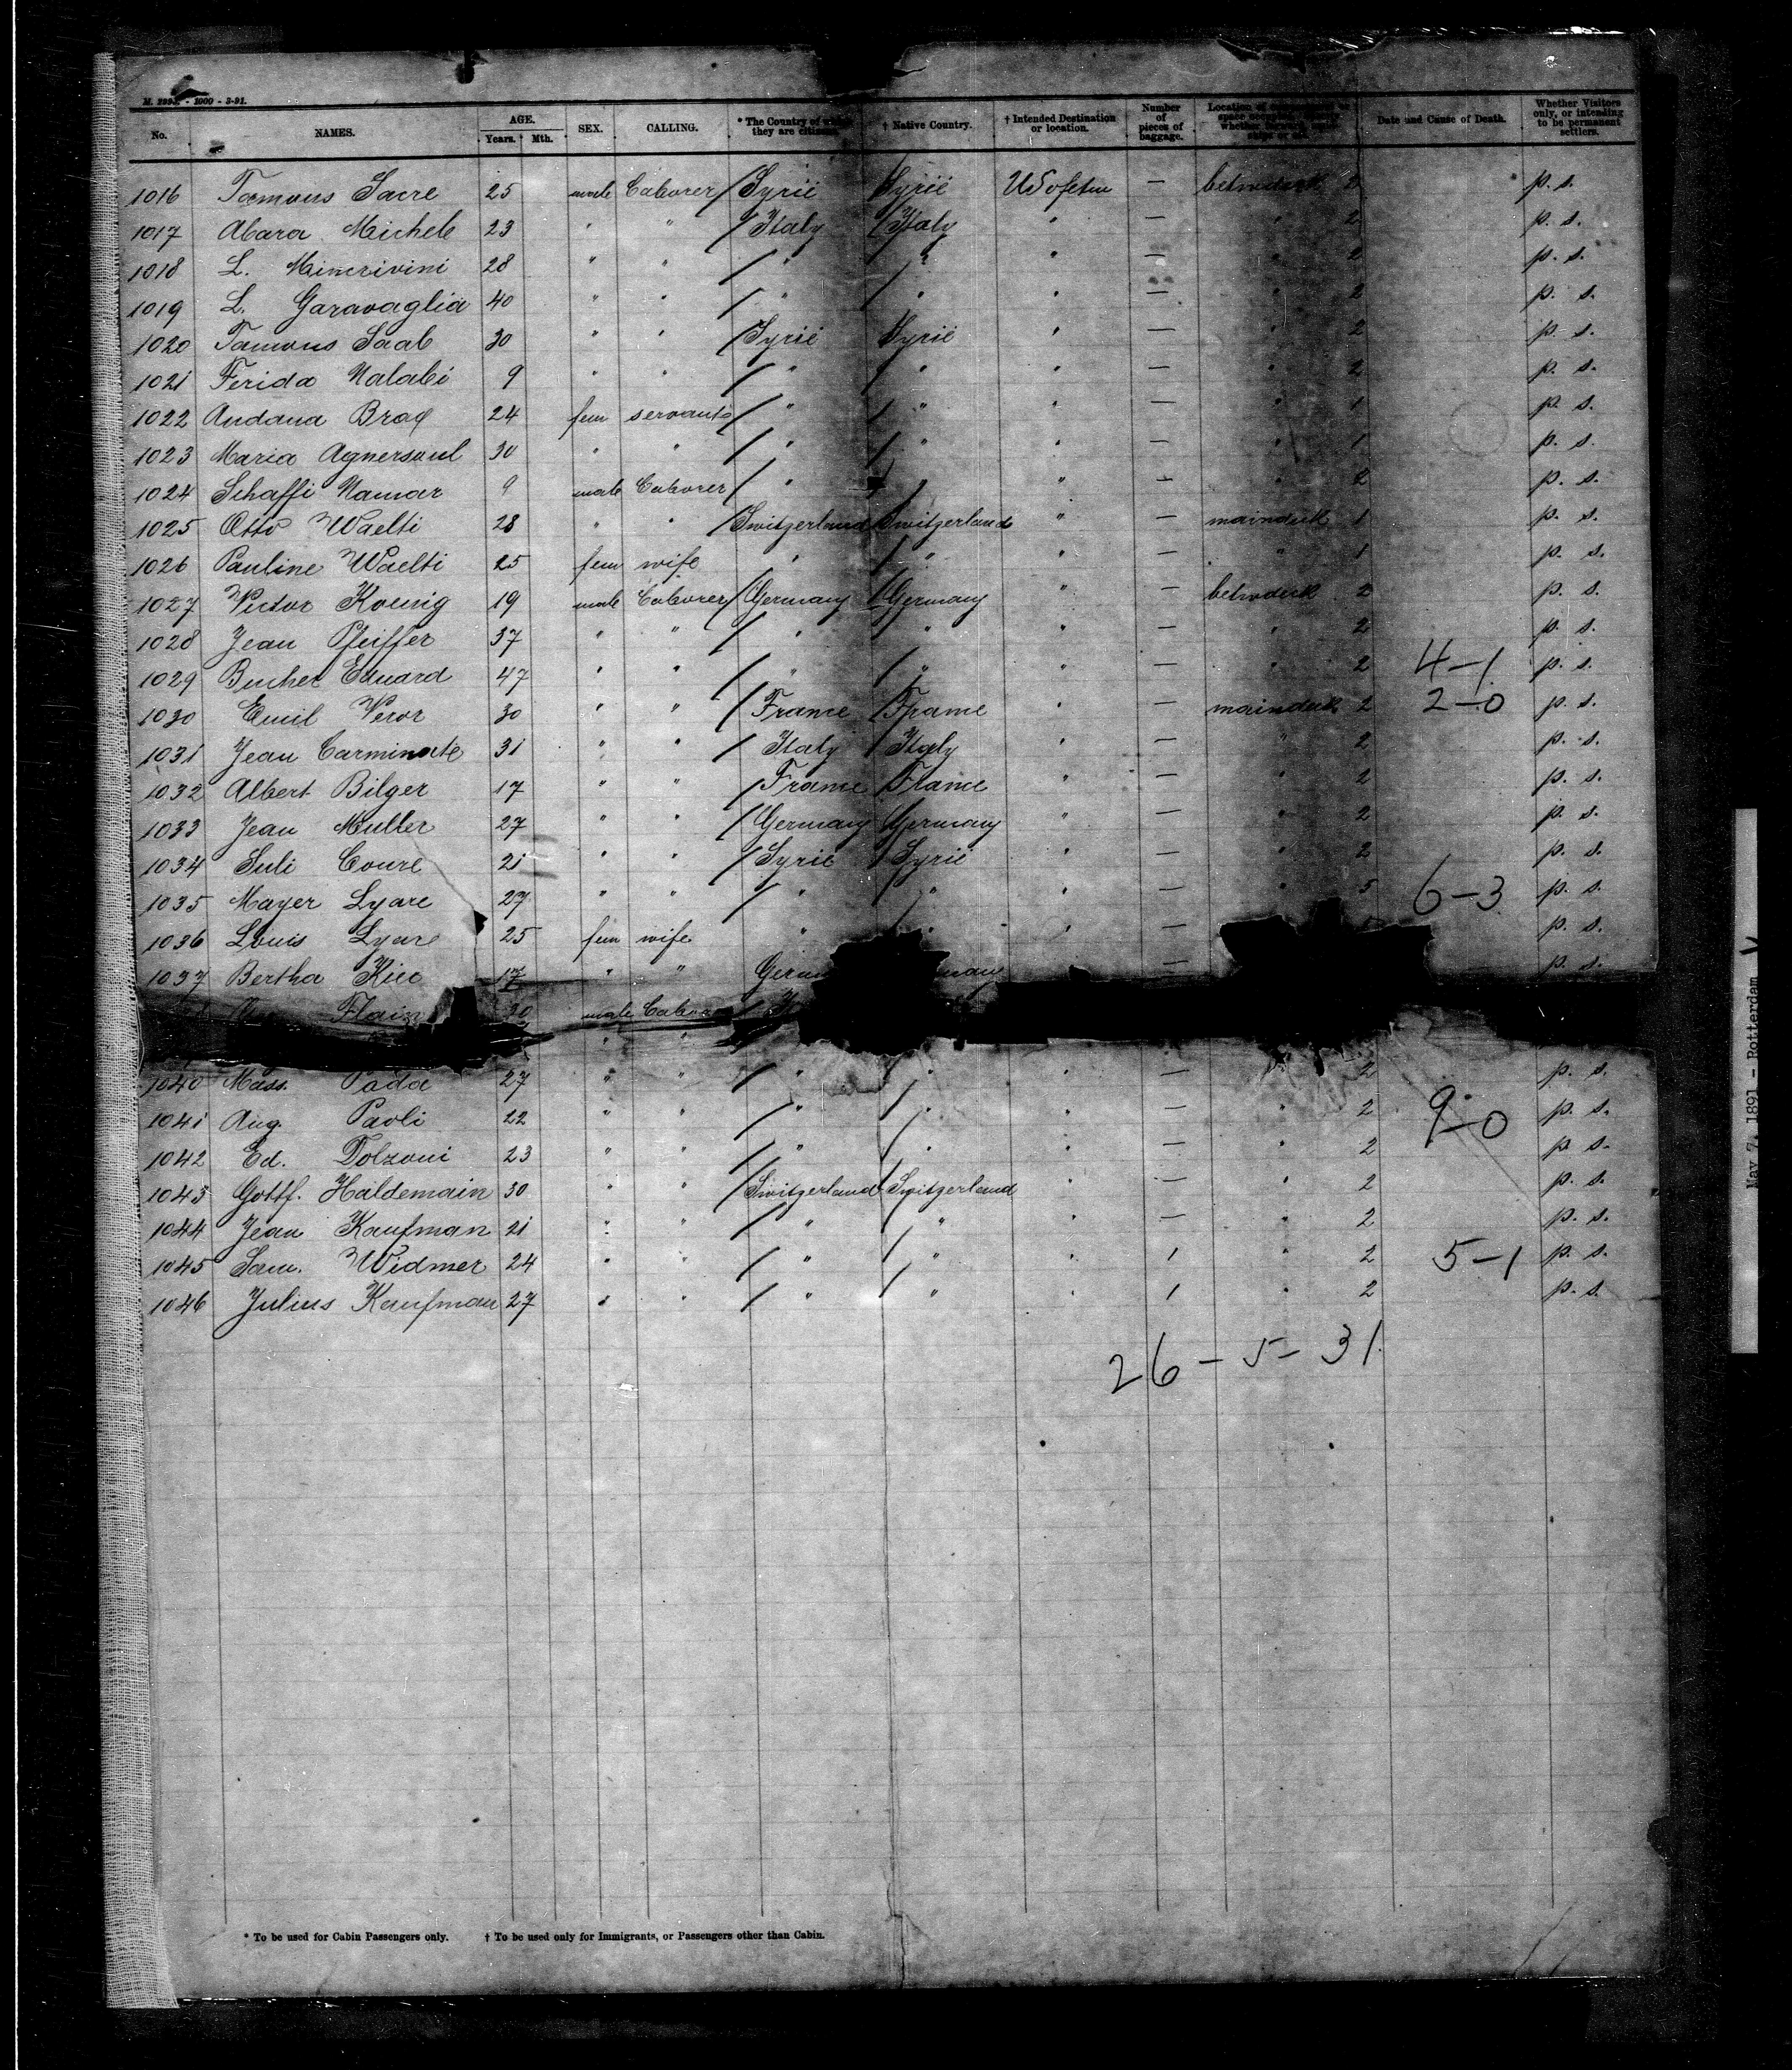 M. 2293. - 1000 - 3-91.
No. NAMES. AGE. Years. Mth. SEX. CALLING. * The Country of which they are citizens. † Native Country. † Intended Destination or location. Number of pieces of baggage. Location of space Date and Cause of Death. Whether Visitors only, or intending to be permanent settlers.
1016 Tamous Sacre 25 male Laborer / Syrië Syrië US of — betwdeck 2 p. s.
1017 Abara Michele 23 " " / Italy / Italy " — " 2 p. s.
1018 L. Minervini 28 " " / " / " " — " 2 p. s.
1019 L. Garavaglia 40 " " / " / " " — " 2 p. s.
1020 Tamous Saab 30 " " / Syrië Syrië " — " 2 p. s.
1021 Ferida Nalabi 9 " " / " / " " — " 2 p. s.
1022 Andana Brax 24 fem servants / " / " " — " 1 p. s.
1023 Maria Agnersoul 30 " " / " / " " — " 1 p. s.
1024 Schaffi Namar 9 male Laborer / " / " " — " 2 p. s.
1025 Otto Waelti 28 " " / Switzerland Switzerland " — maindeck 1 p. s.
1026 Pauline Waelti 25 fem wife " / " " — " 1 p. s.
1027 Victor Koenig 19 male Laborer / Germany / Germany " — betwdeck 2 p. s.
1028 Jean Pfeiffer 37 " " / " / " " — " 2 p. s.
1029 Bucher Eduard 47 " " / " / " " — " 2 4-1 p. s.
1030 Emil Veror 30 " " / France / France " — maindeck 2 2-0 p. s.
1031 Jean Carminate 31 " " / Italy / Italy " — " 2 p. s.
1032 Albert Bilger 17 " " / France / France " — " 2 p. s.
1033 Jean Muller 27 " " / Germany / Germany " — " 2 p. s.
1034 Suli Coure 21 " " / Syrië / Syrië " — " 2 p. s.
1035 Mayer Lyare 27 " " / " " " — " 5 6-3 p. s.
1036 Louis Lyare 25 fem wife " " " — p. s.
1037 Bertha Kiee 17 " " — p. s.
30 male
1040 Mass. Pada 27 " " / " / " " — " 2 p. s.
1041 Aug. Paoli 22 " " / " / " " — " 2 9-0 p. s.
1042 Ed. Tolzoni 23 " " / " / " " — " 2 p s.
1043 Gottf. Haldemain 30 " " / Switzerland / Switzerland " — " 2 p. s.
1044 Jean Kaufman 21 " " / " / " " — " 2 p. s.
1045 Sam. Widmer 24 " " / " / " " 1 " 2 5-1 p. s.
1046 Julius Kaufman 27 " " / " / " " 1 " 2 p. s.
26 - 5 - 31
* To be used for Cabin Passengers only. † To be used only for Immigrants, or Passengers other than Cabin.
May 7, 1891 - Rotterdam